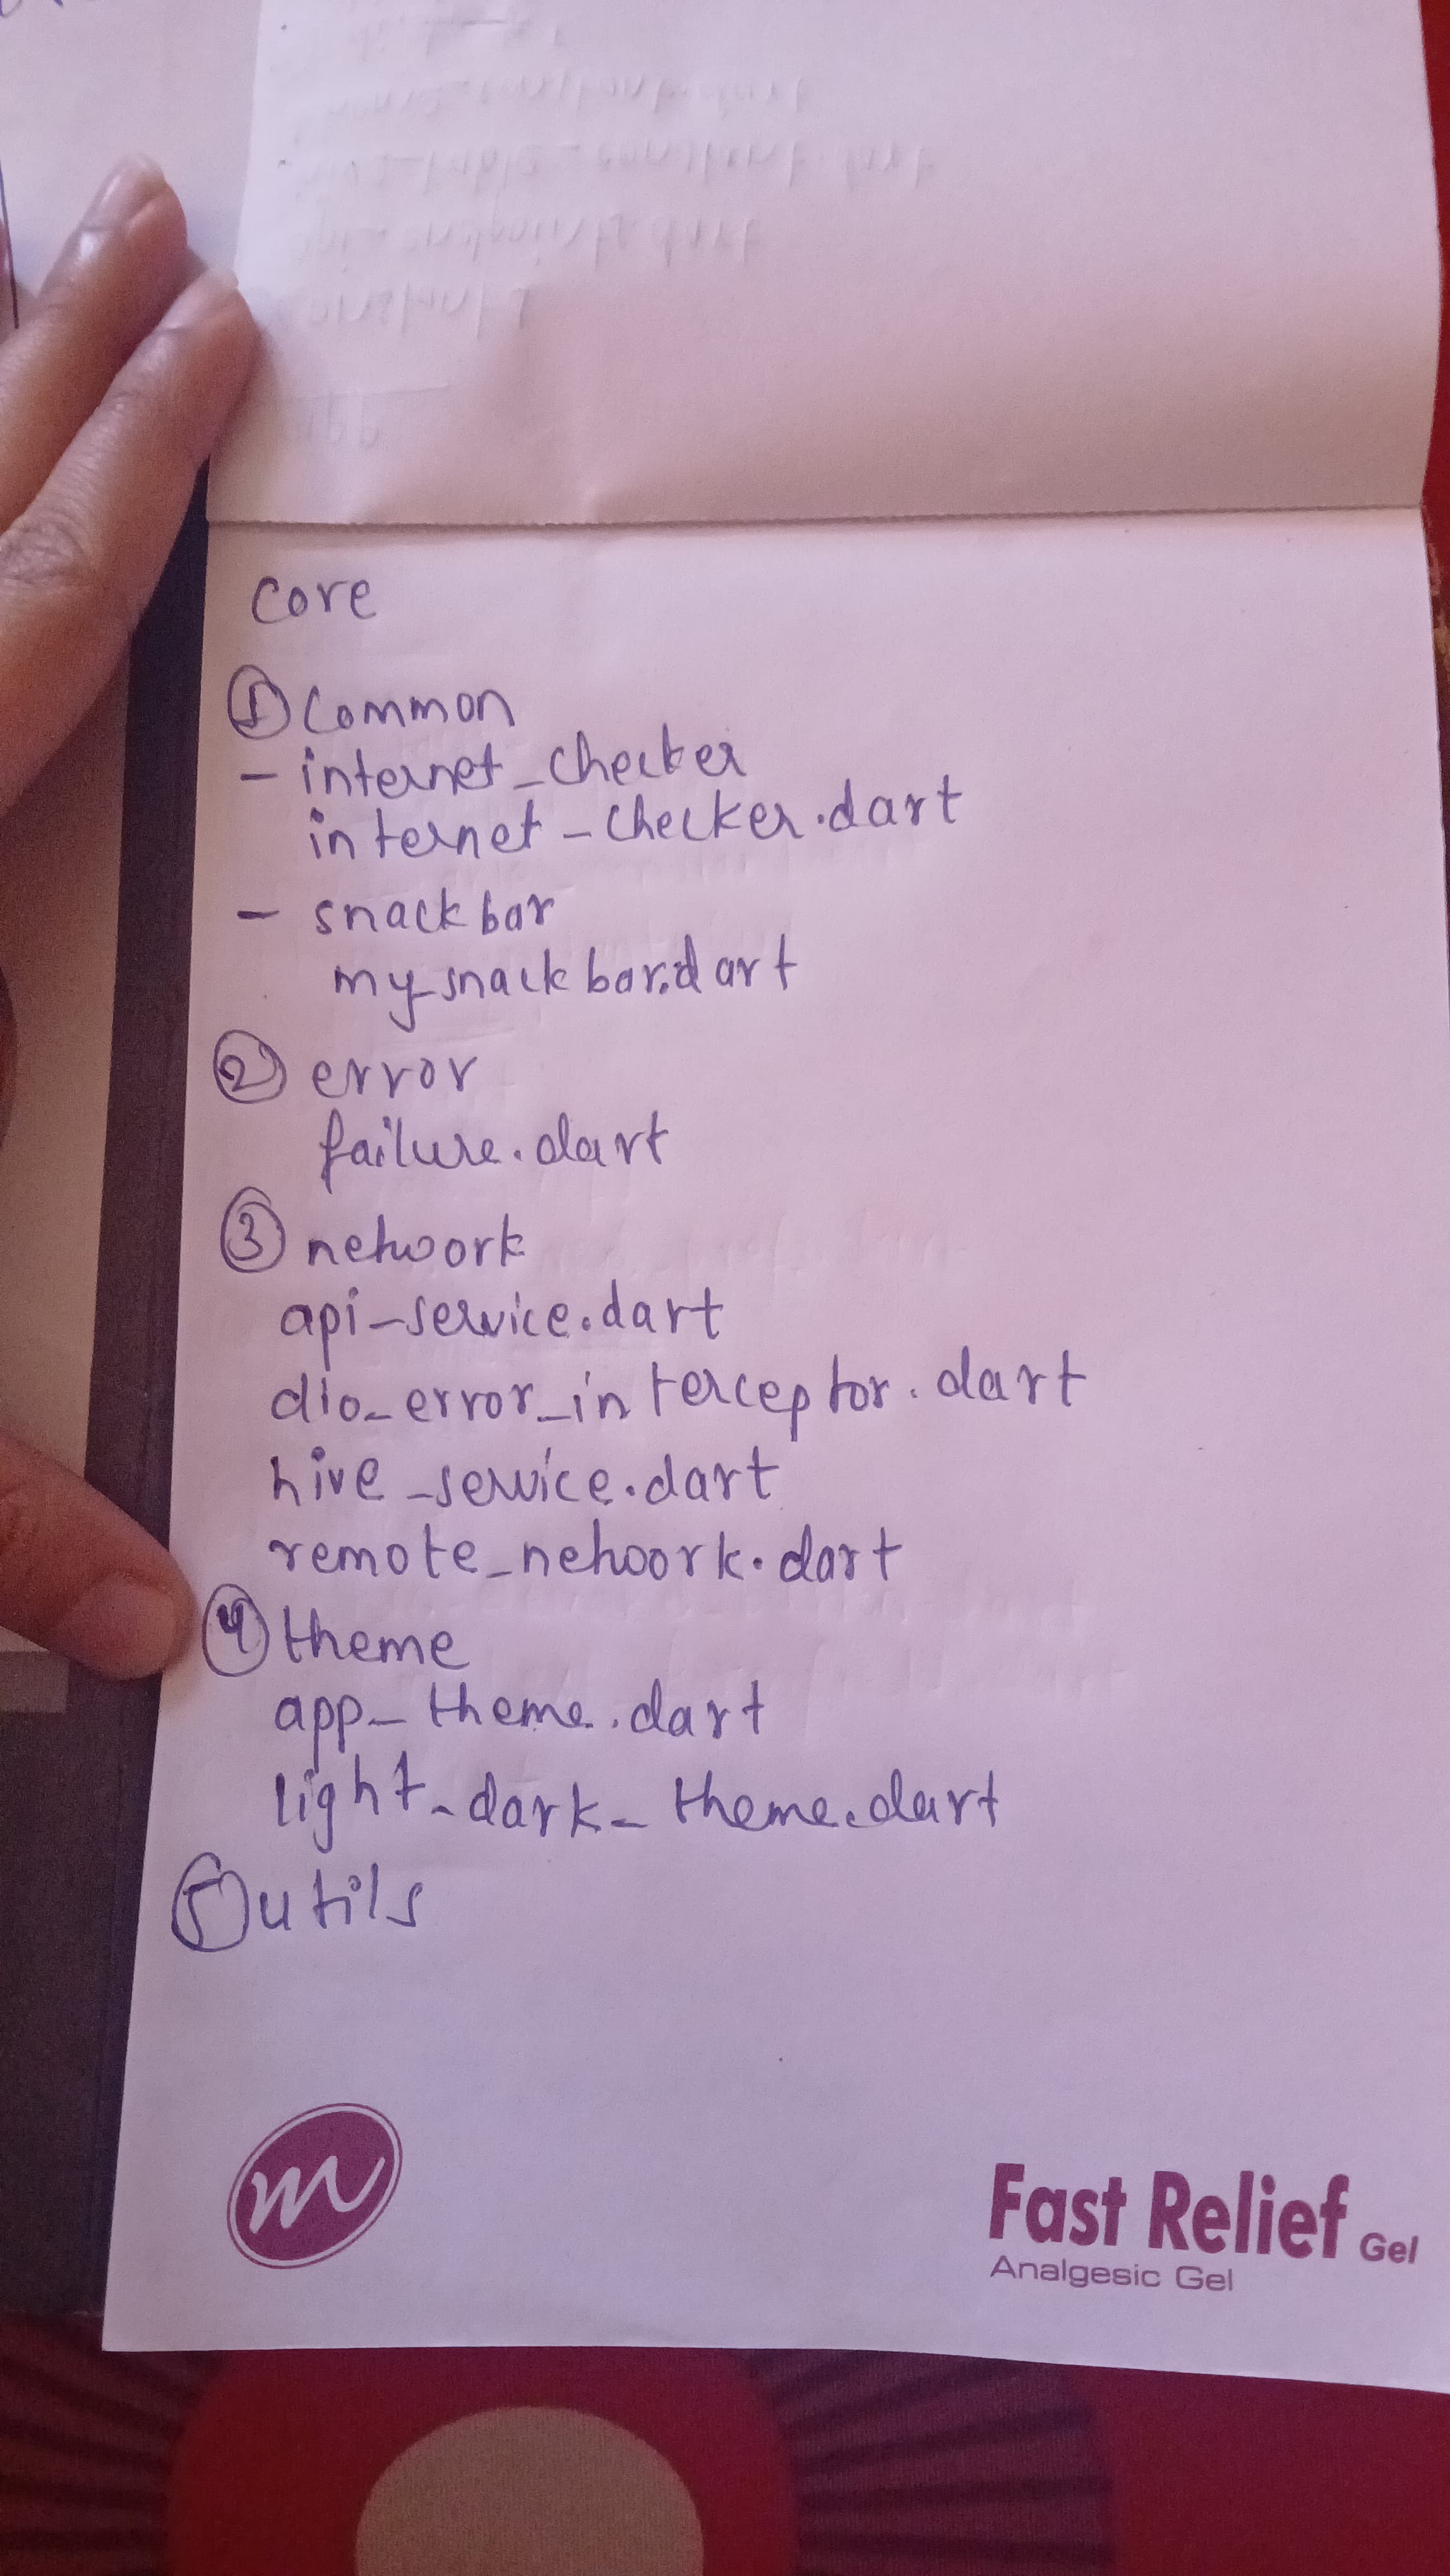 core
① Common
- internet_checker
internet_checker.dart
- snackbar
my_snackbar.dart
② error
failure.dart
③ network
api_service.dart
dio_error_interceptor.dart
hive_service.dart
remote_network.dart
④ theme
app_theme.dart
light_dark_theme.dart
⑤ utils
m
Fast Relief Gel
Analgesic Gel